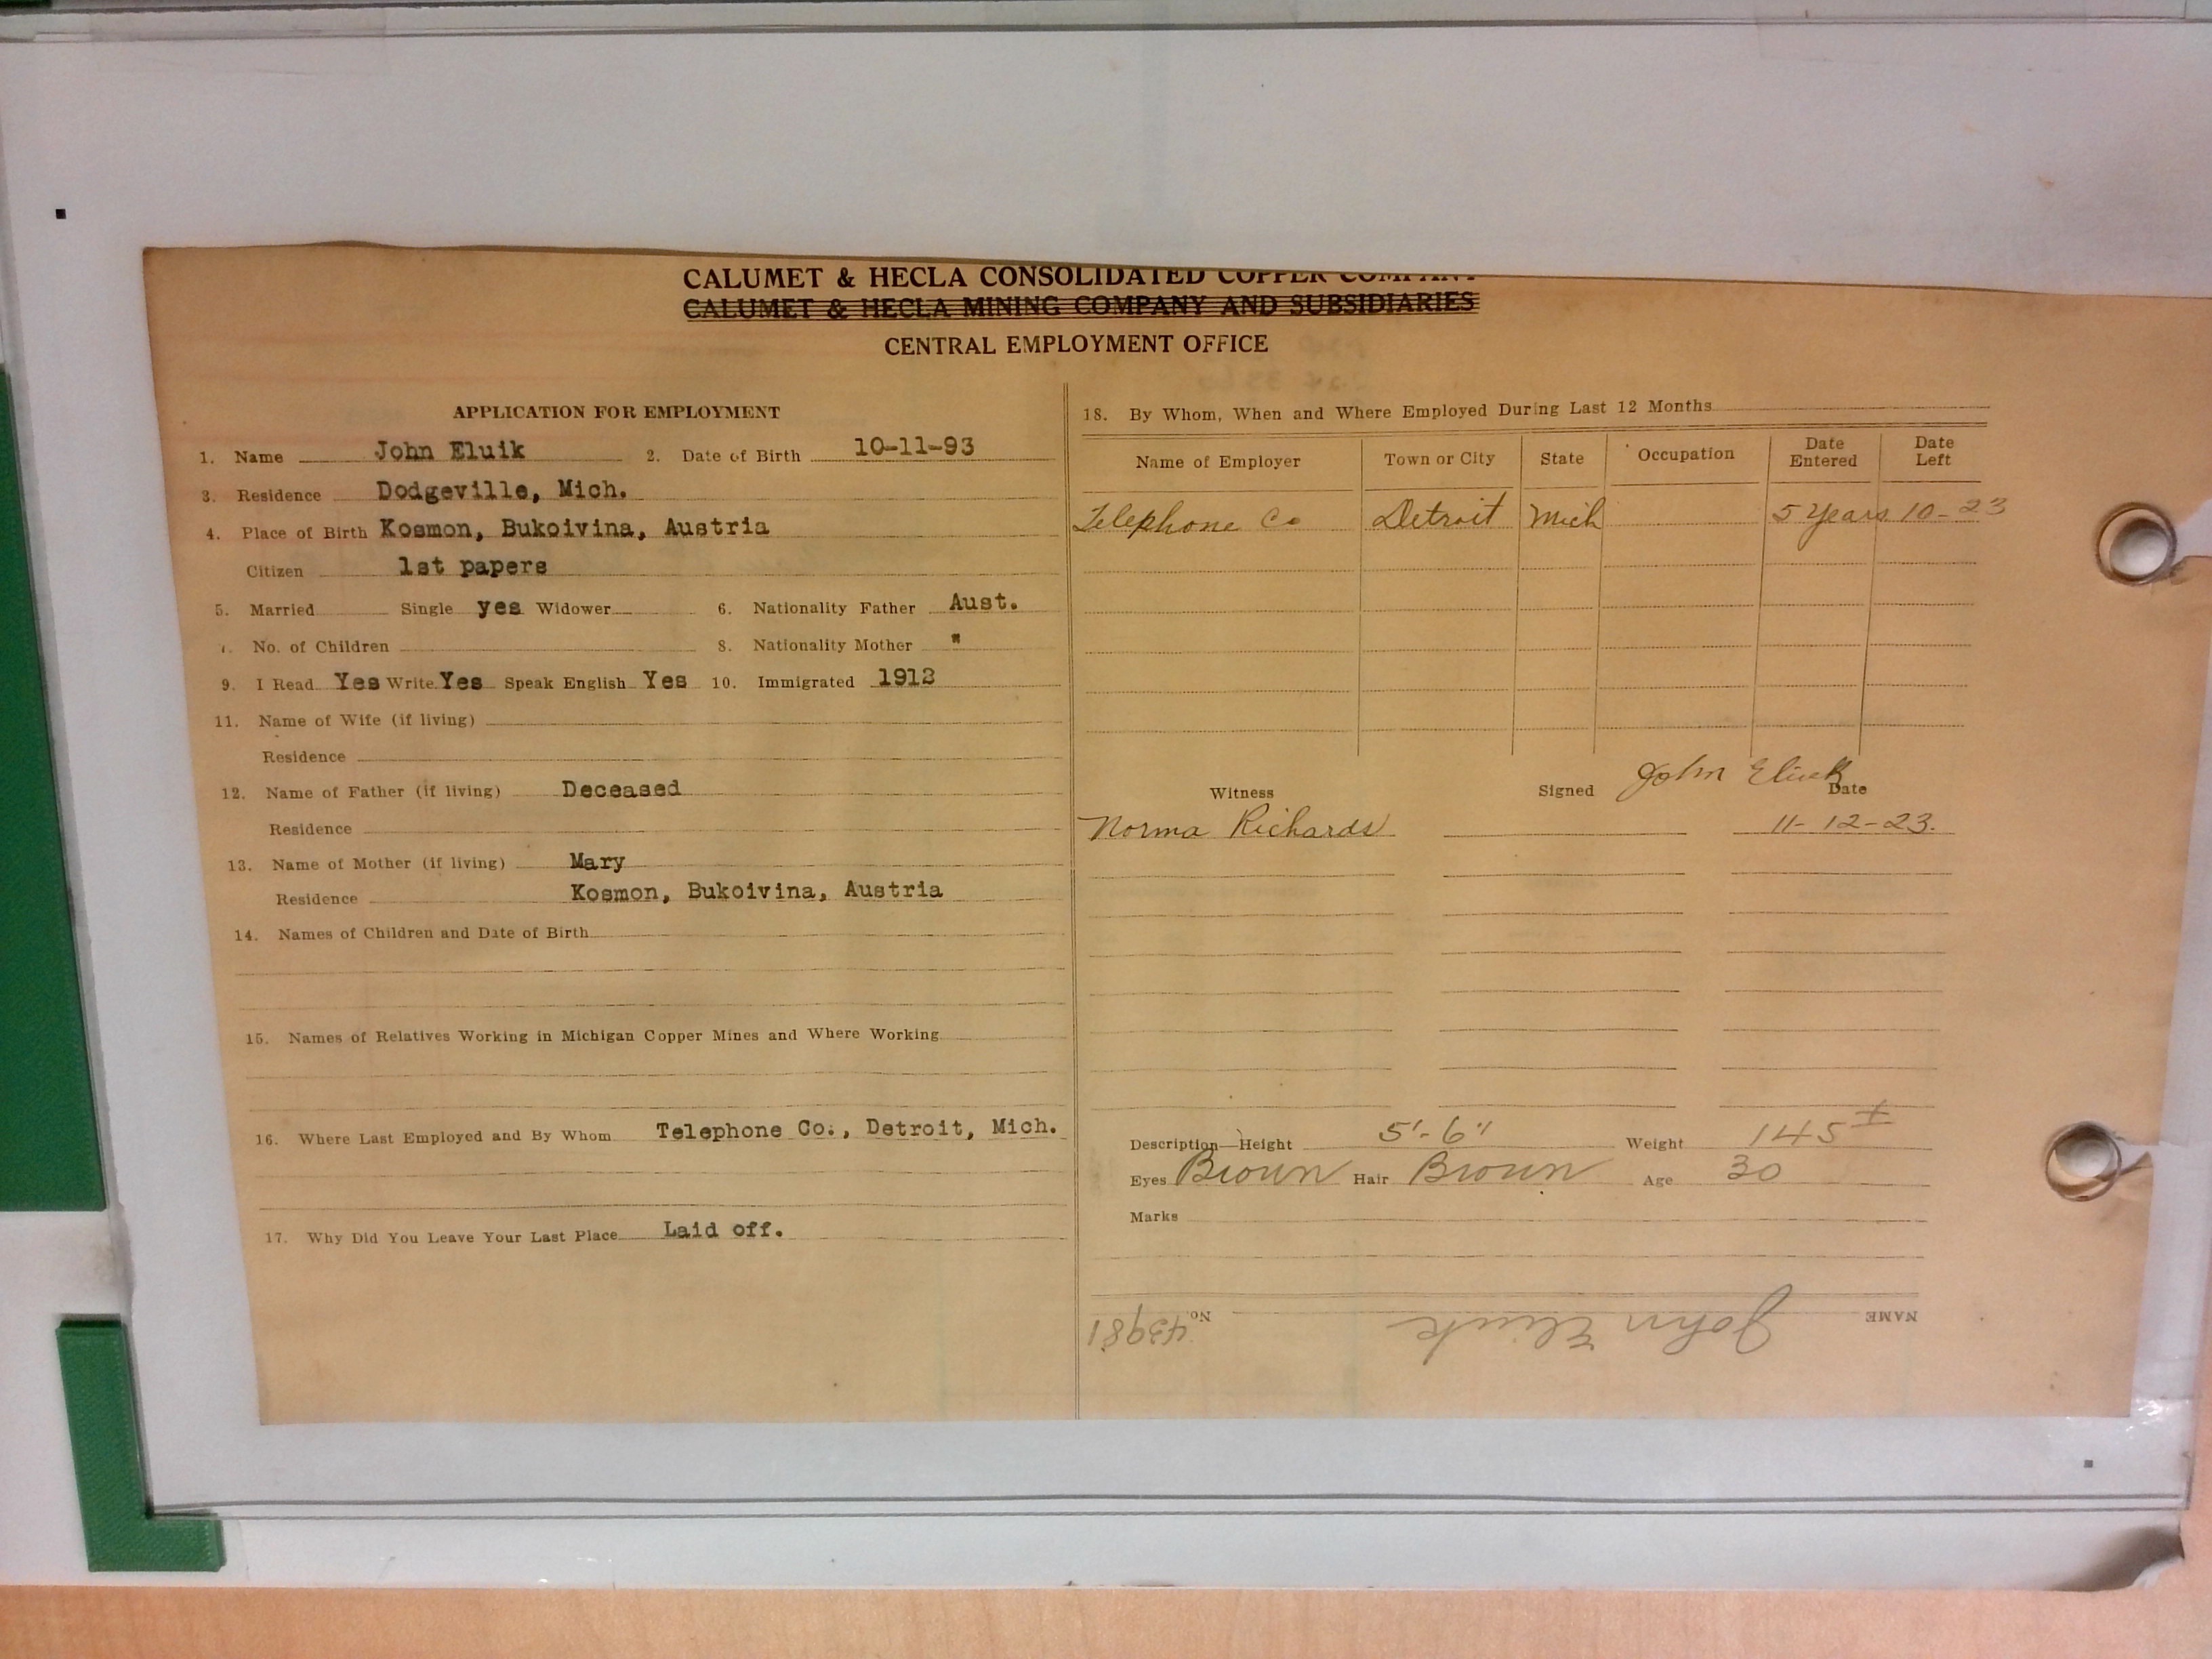 CALUMET & HECLA CONSOLIDATED COPPER COMPANY
CALUMET & HECLA MINING COMPANY AND SUBSIDIARIES
CENTRAL EMPLOYMENT OFFICE
APPLICATION FOR EMPLOYMENT
1. Name John Eluik 2. Date of Birth 10-11-93
3. Residence Dodgeville, Mich.
4. Place of Birth Kosmon, Bukoivina, Austria
Citizen 1st papers
5. Married Single yes Widower 6. Nationality Father Aust.
7. No. of Children 8. Nationality Mother "
9. I Read Yes Write Yes Speak English Yes 10. Immigrated 1912
11. Name of Wife (if living)
Residence
12. Name of Father (if living) Deceased
Residence
13. Name of Mother (if living) Mary
Residence Kosmon, Bukoivina, Austria
14. Names of Children and Date of Birth
15. Names of Relatives Working in Michigan Copper Mines and Where Working
16. Where Last Employed and By Whom Telephone Co., Detroit, Mich.
17. Why Did You Leave Your Last Place Laid off.
18. By Whom, When and Where Employed During Last 12 Months
Name of Employer Town or City State Occupation Date Entered Date Left
Telephone Co Detroit Mich 5 Years 10-23
Witness Signed John Eluik Date
Norma Richards 11-12-23.
Description—Height 5'-6" Weight 145±
Eyes Brown Hair Brown Age 30
Marks
NAME John Eluik No. 43981